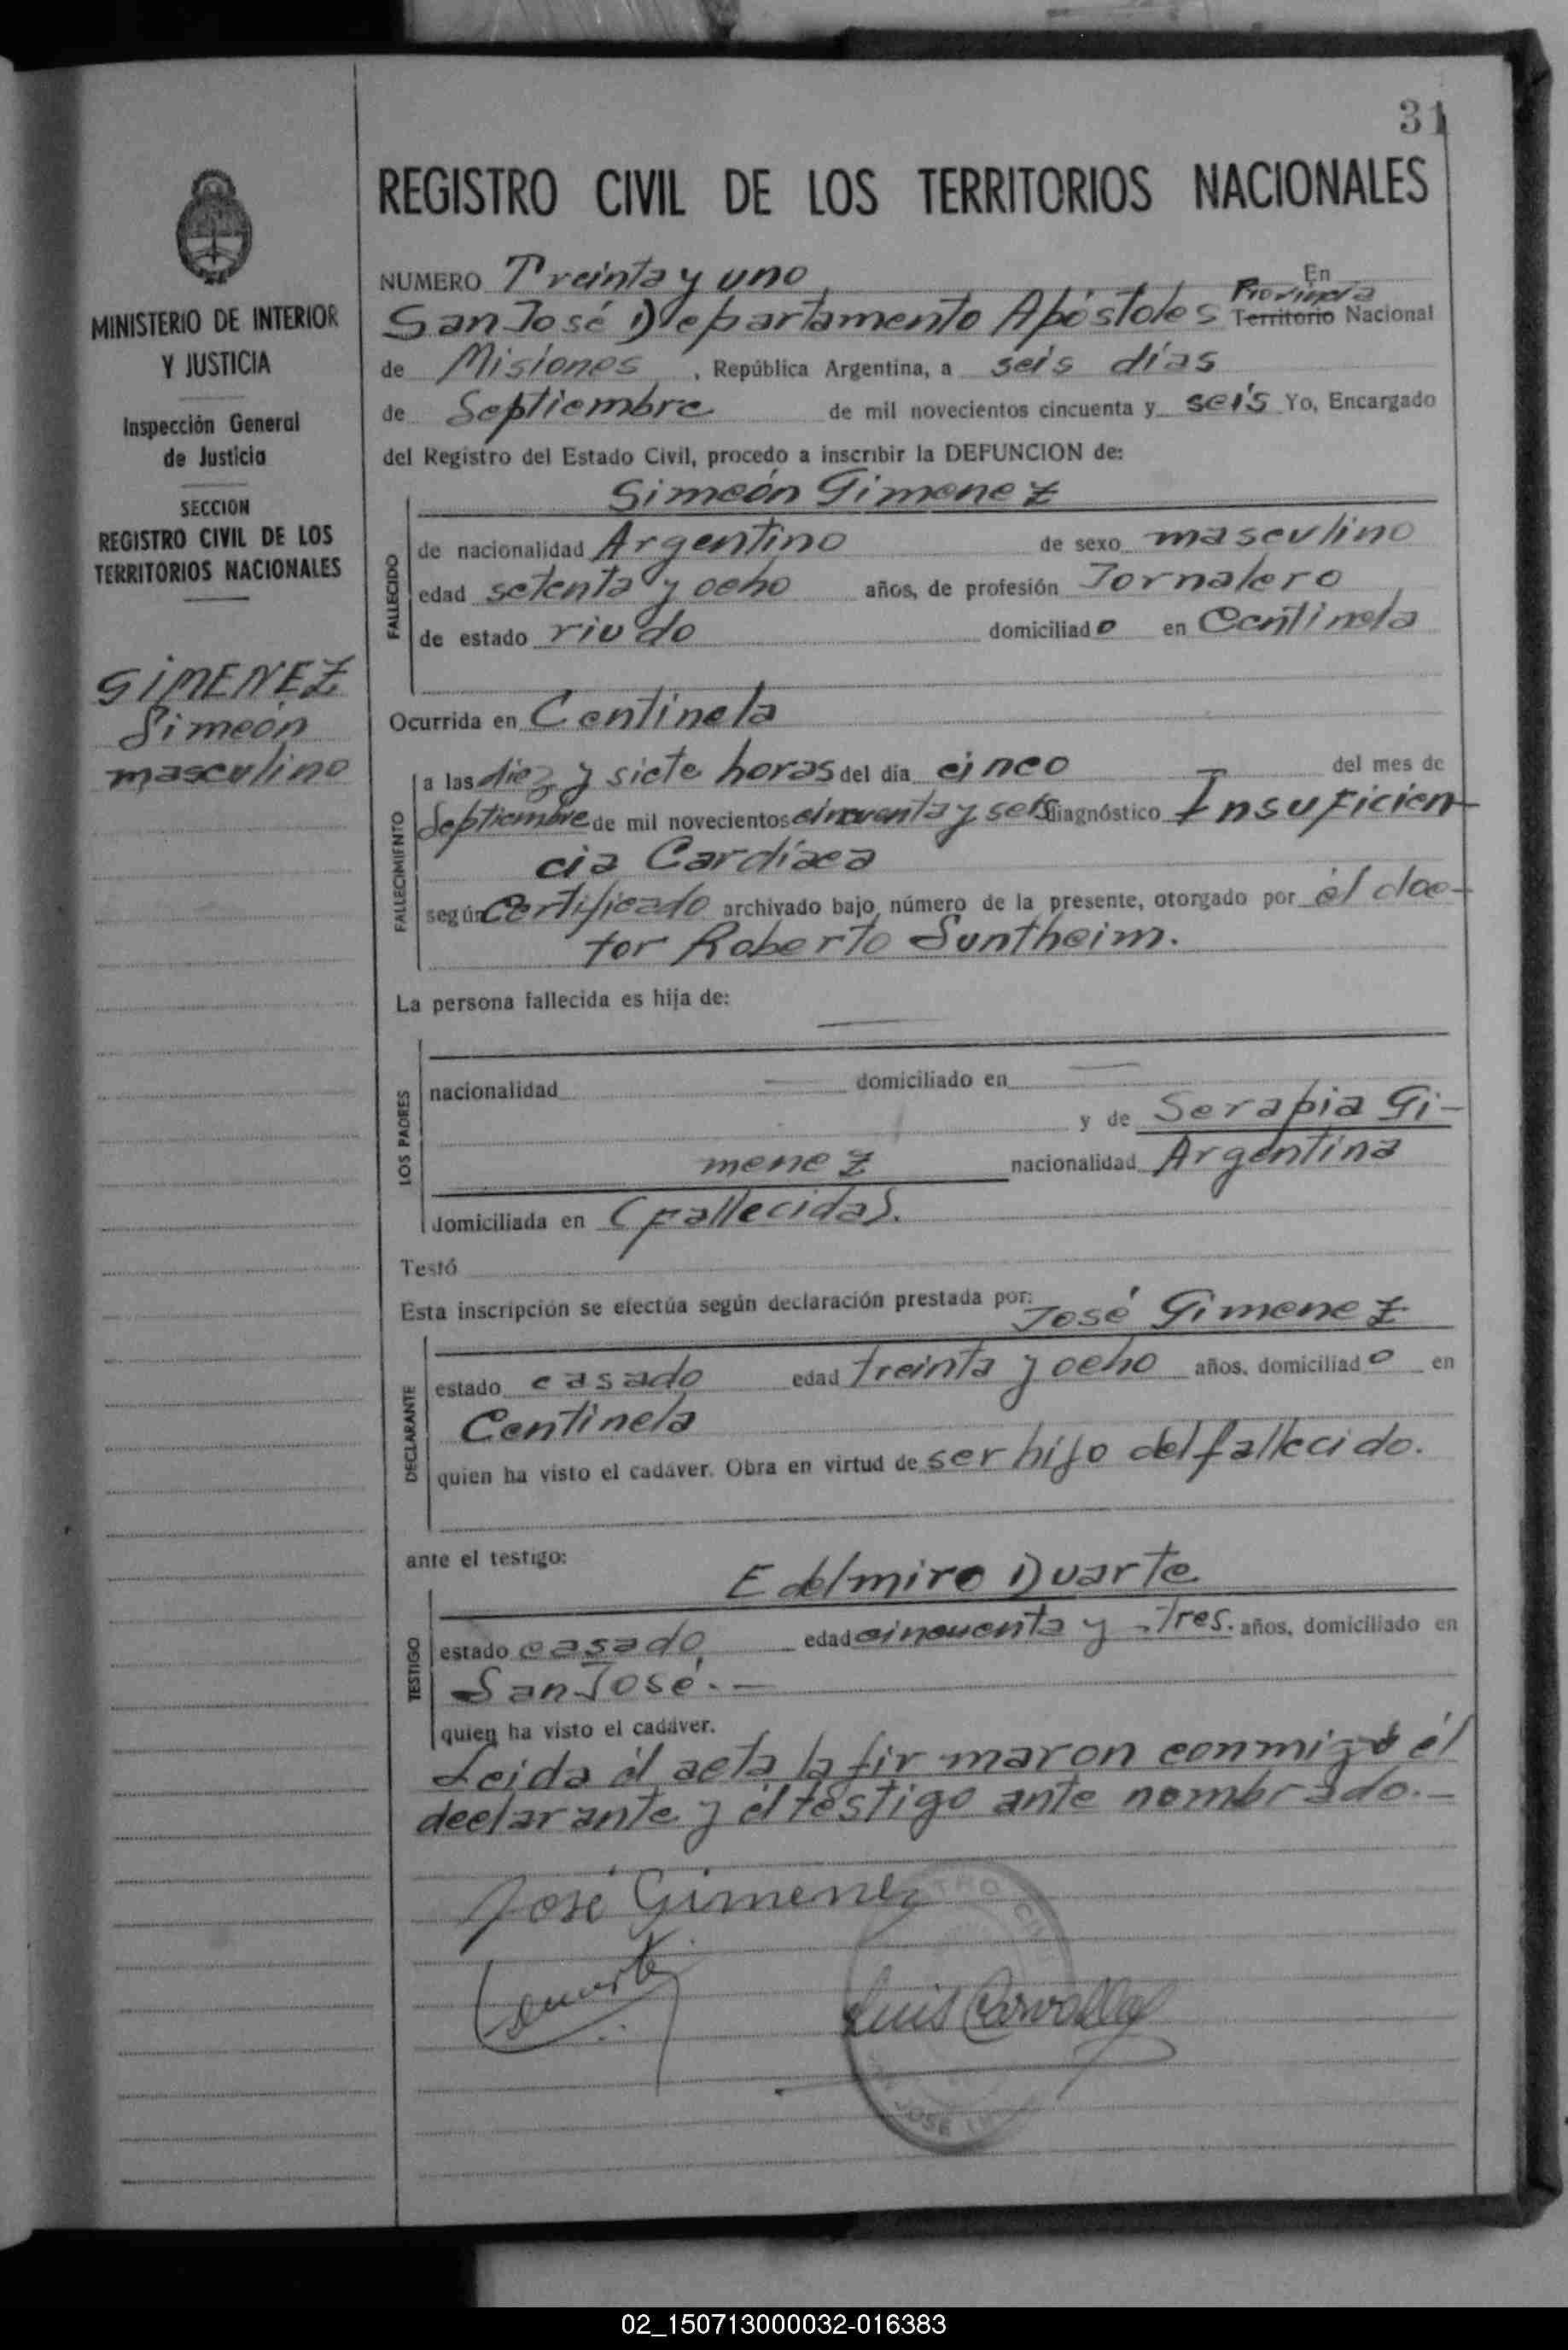 31
REGISTRO CIVIL DE LOS TERRITORIOS NACIONALES
MINISTERIO DE INTERIOR
Y JUSTICIA
Inspección General
de Justicia
SECCION
REGISTRO CIVIL DE LOS
TERRITORIOS NACIONALES
GIMENEZ
Simeón
masculino
NUMERO Treinta y uno En
San José Departamento Apóstoles Provincia Territorio Nacional
de Misiones, República Argentina, a seis días
de Septiembre de mil novecientos cincuenta y seis Yo, Encargado
del Registro del Estado Civil, procedo a inscribir la DEFUNCION de:
Simeón Gimenez
FALLECIDO
de nacionalidad Argentino de sexo masculino
edad setenta y ocho años, de profesión Jornalero
de estado viudo domiciliado en Centinela
Ocurrida en Centinela
FALLECIMIENTO
a las diez y siete horas del día cinco del mes de
Septiembre de mil novecientos cincuenta y seis diagnóstico Insuficien-
cia Cardíaca
según Certificado archivado bajo número de la presente, otorgado por él doc-
tor Roberto Suntheim.
La persona fallecida es hija de:
LOS PADRES
nacionalidad domiciliado en
y de Serapia Gi-
menez nacionalidad Argentina
domiciliada en (fallecida).
Testó
Esta inscripción se efectúa según declaración prestada por:
José Gimenez
DECLARANTE
estado casado edad treinta y ocho años, domiciliado en
Centinela
quien ha visto el cadáver. Obra en virtud de ser hijo del fallecido.
ante el testigo:
Edelmiro Duarte
TESTIGO
estado casado edad cincuenta y tres. años, domiciliado en
San José.-
quien ha visto el cadáver.
Leida él acta la firmaron conmigo él
declarante y él testigo ante nombrado.-
José Gimenez
Duarte
Luis Carvallo
02_150713000032-016383